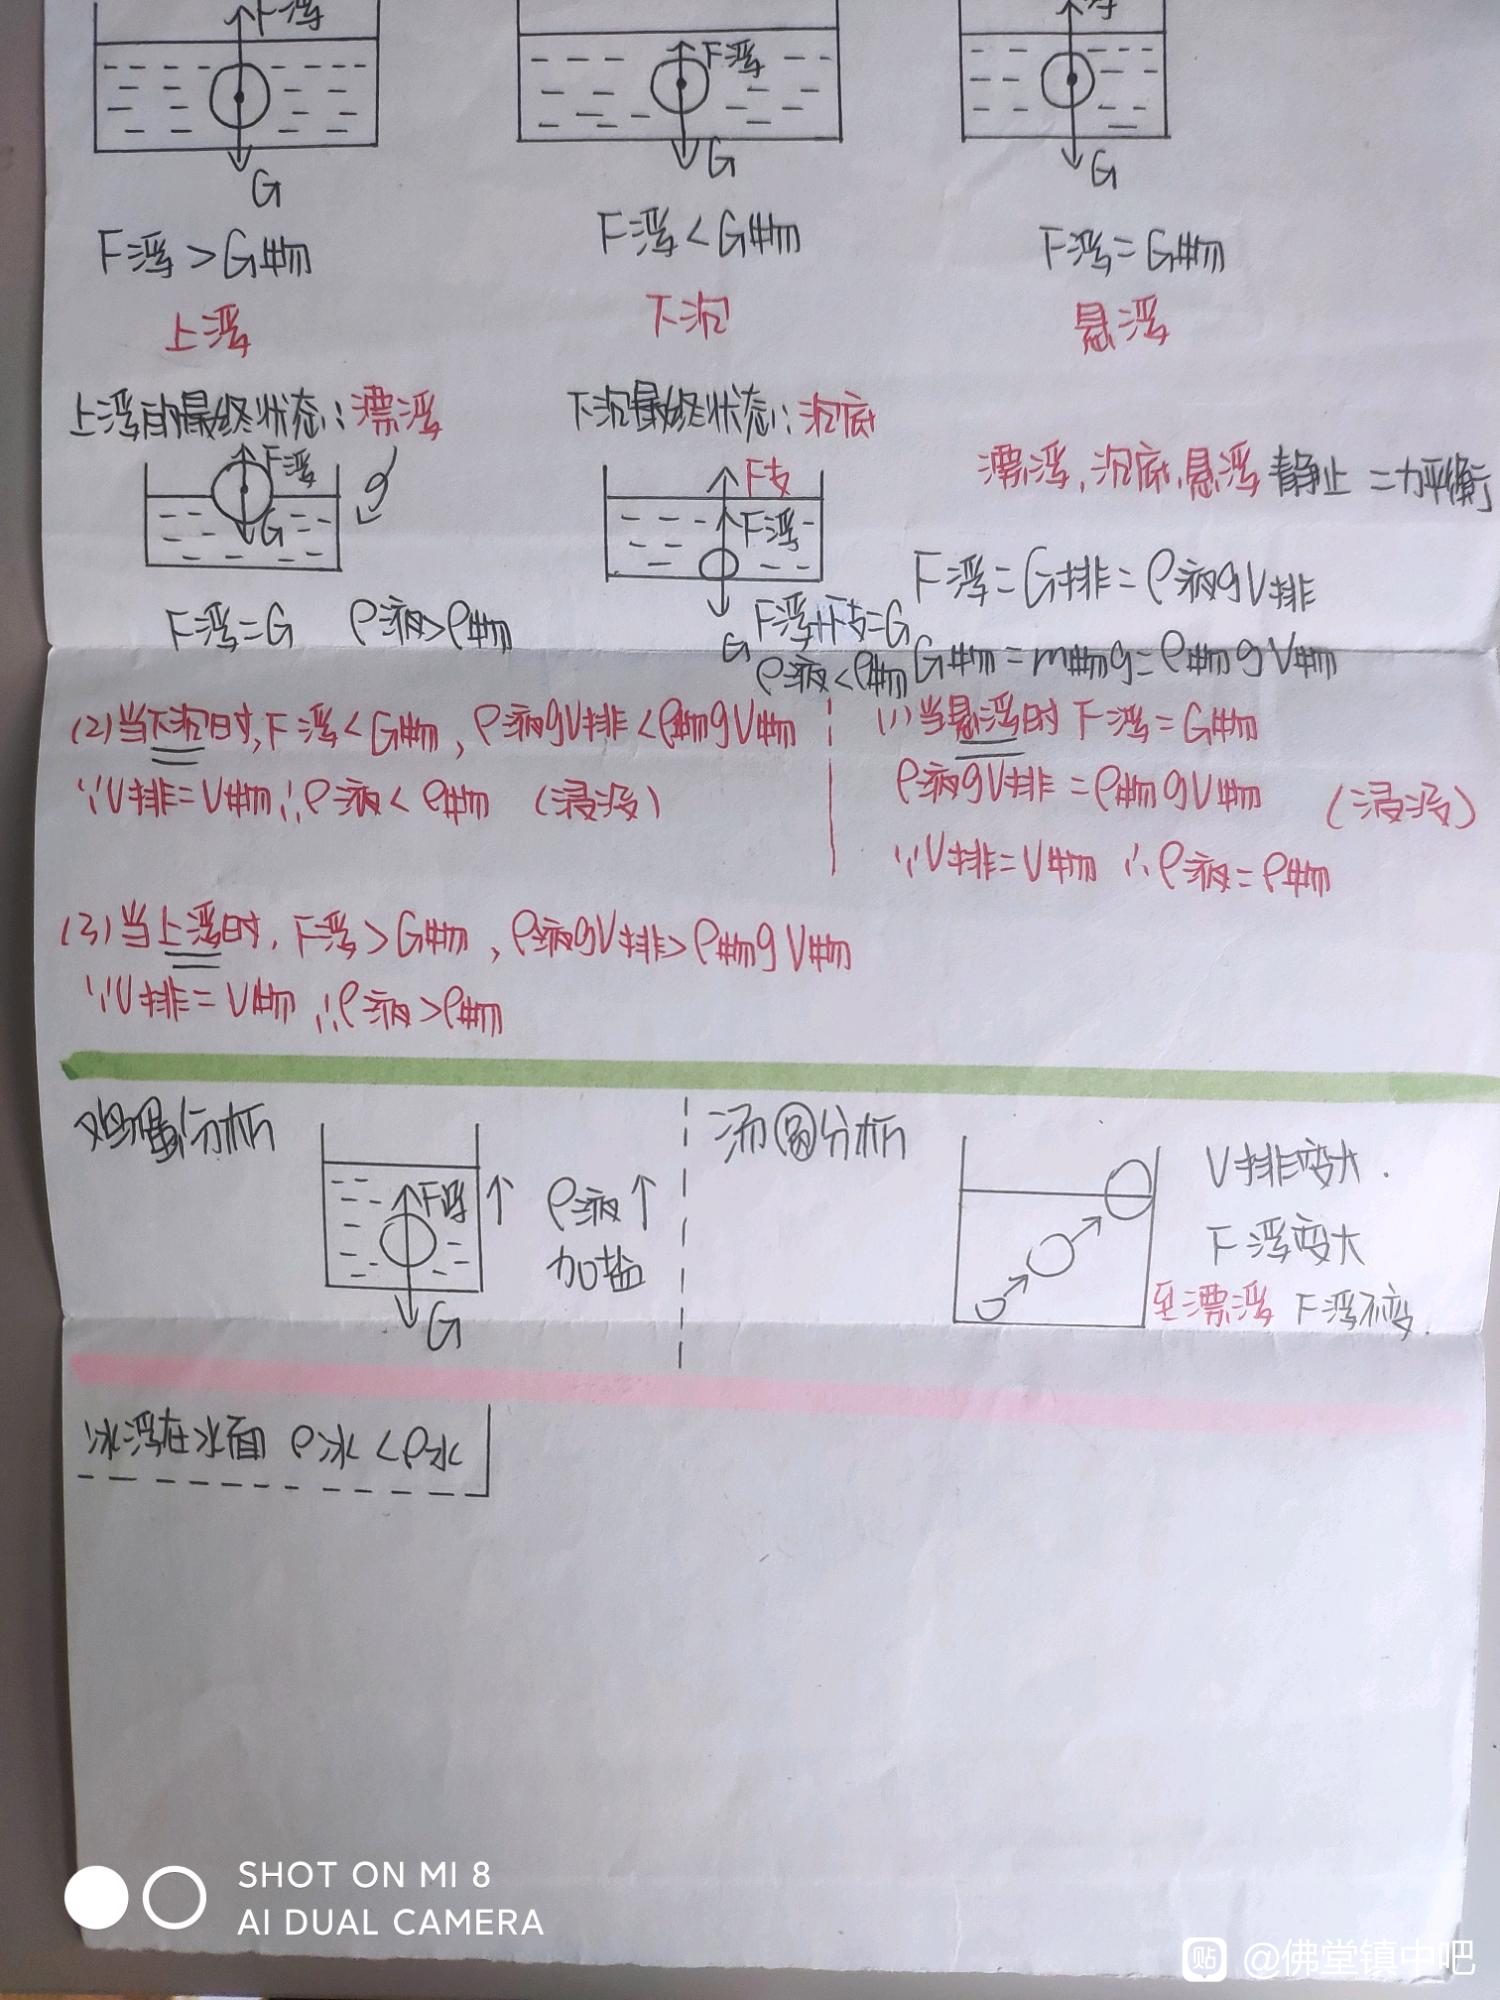 F浮
F浮
浮
G
G
G
F浮>G物
F浮<G物
F浮=G物
上浮
下沉
悬浮
上浮的最终状态:漂浮
下沉最终状态:沉底
F浮
G
F支
F浮
G
漂浮,沉底,悬浮 静止 二力平衡
F浮=G ρ液>ρ物
F浮+F支=G
ρ液<ρ物
F浮=G排=ρ液gV排
G物=m物g=ρ物gV物
(2)当下沉时,F浮<G物,ρ液gV排<ρ物gV物
∵V排=V物∴ρ液<ρ物 (浸没)
(1)当悬浮时 F浮=G物
ρ液gV排=ρ物gV物 (浸没)
∵V排=V物 ∴ρ液=ρ物
(3)当上浮时,F浮>G物,ρ液gV排>ρ物gV物
∵V排=V物 ∴ρ液>ρ物
鸡蛋分析
F浮
G
↑ ρ液↑
加盐
汤圆分析
V排变大.
F浮变大
至漂浮 F浮不变.
冰浮在水面 ρ冰<ρ水
SHOT ON MI 8
AI DUAL CAMERA
贴 @佛堂镇中吧